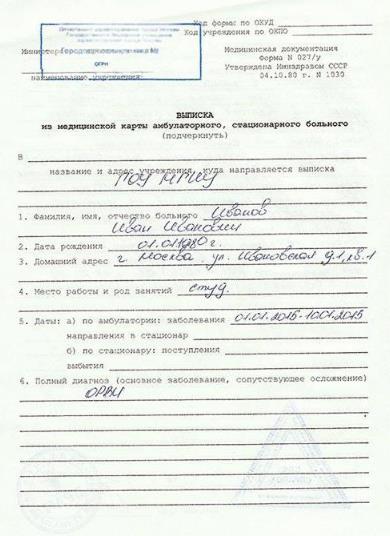 Код формы по ОКУД
Код учреждения по ОКПО
Министерс
Городская
ОГРН
наименование учреждения
Медицинская документация
Форма N 027/у
Утверждена Минздравом СССР
04.10.80 г. N 1030
ВЫПИСКА
из медицинской карты амбулаторного, стационарного больного
(подчеркнуть)
В
название и адрес учреждения, куда направляется выписка
ГОУ
1. Фамилия, имя, отчество больного Иванов
Иван Иванович
2. Дата рождения 01.01.1980г.
3. Домашний адрес г. Москва ул. Ивановская д.1, кв.1
4. Место работы и род занятий студ.
5. Даты: а) по амбулатории: заболевания 01.01.2015-10.01.2015
направления в стационар
б) по стационару: поступления
выбытия
6. Полный диагноз (основное заболевание, сопутствующее осложнение)
ОРВИ